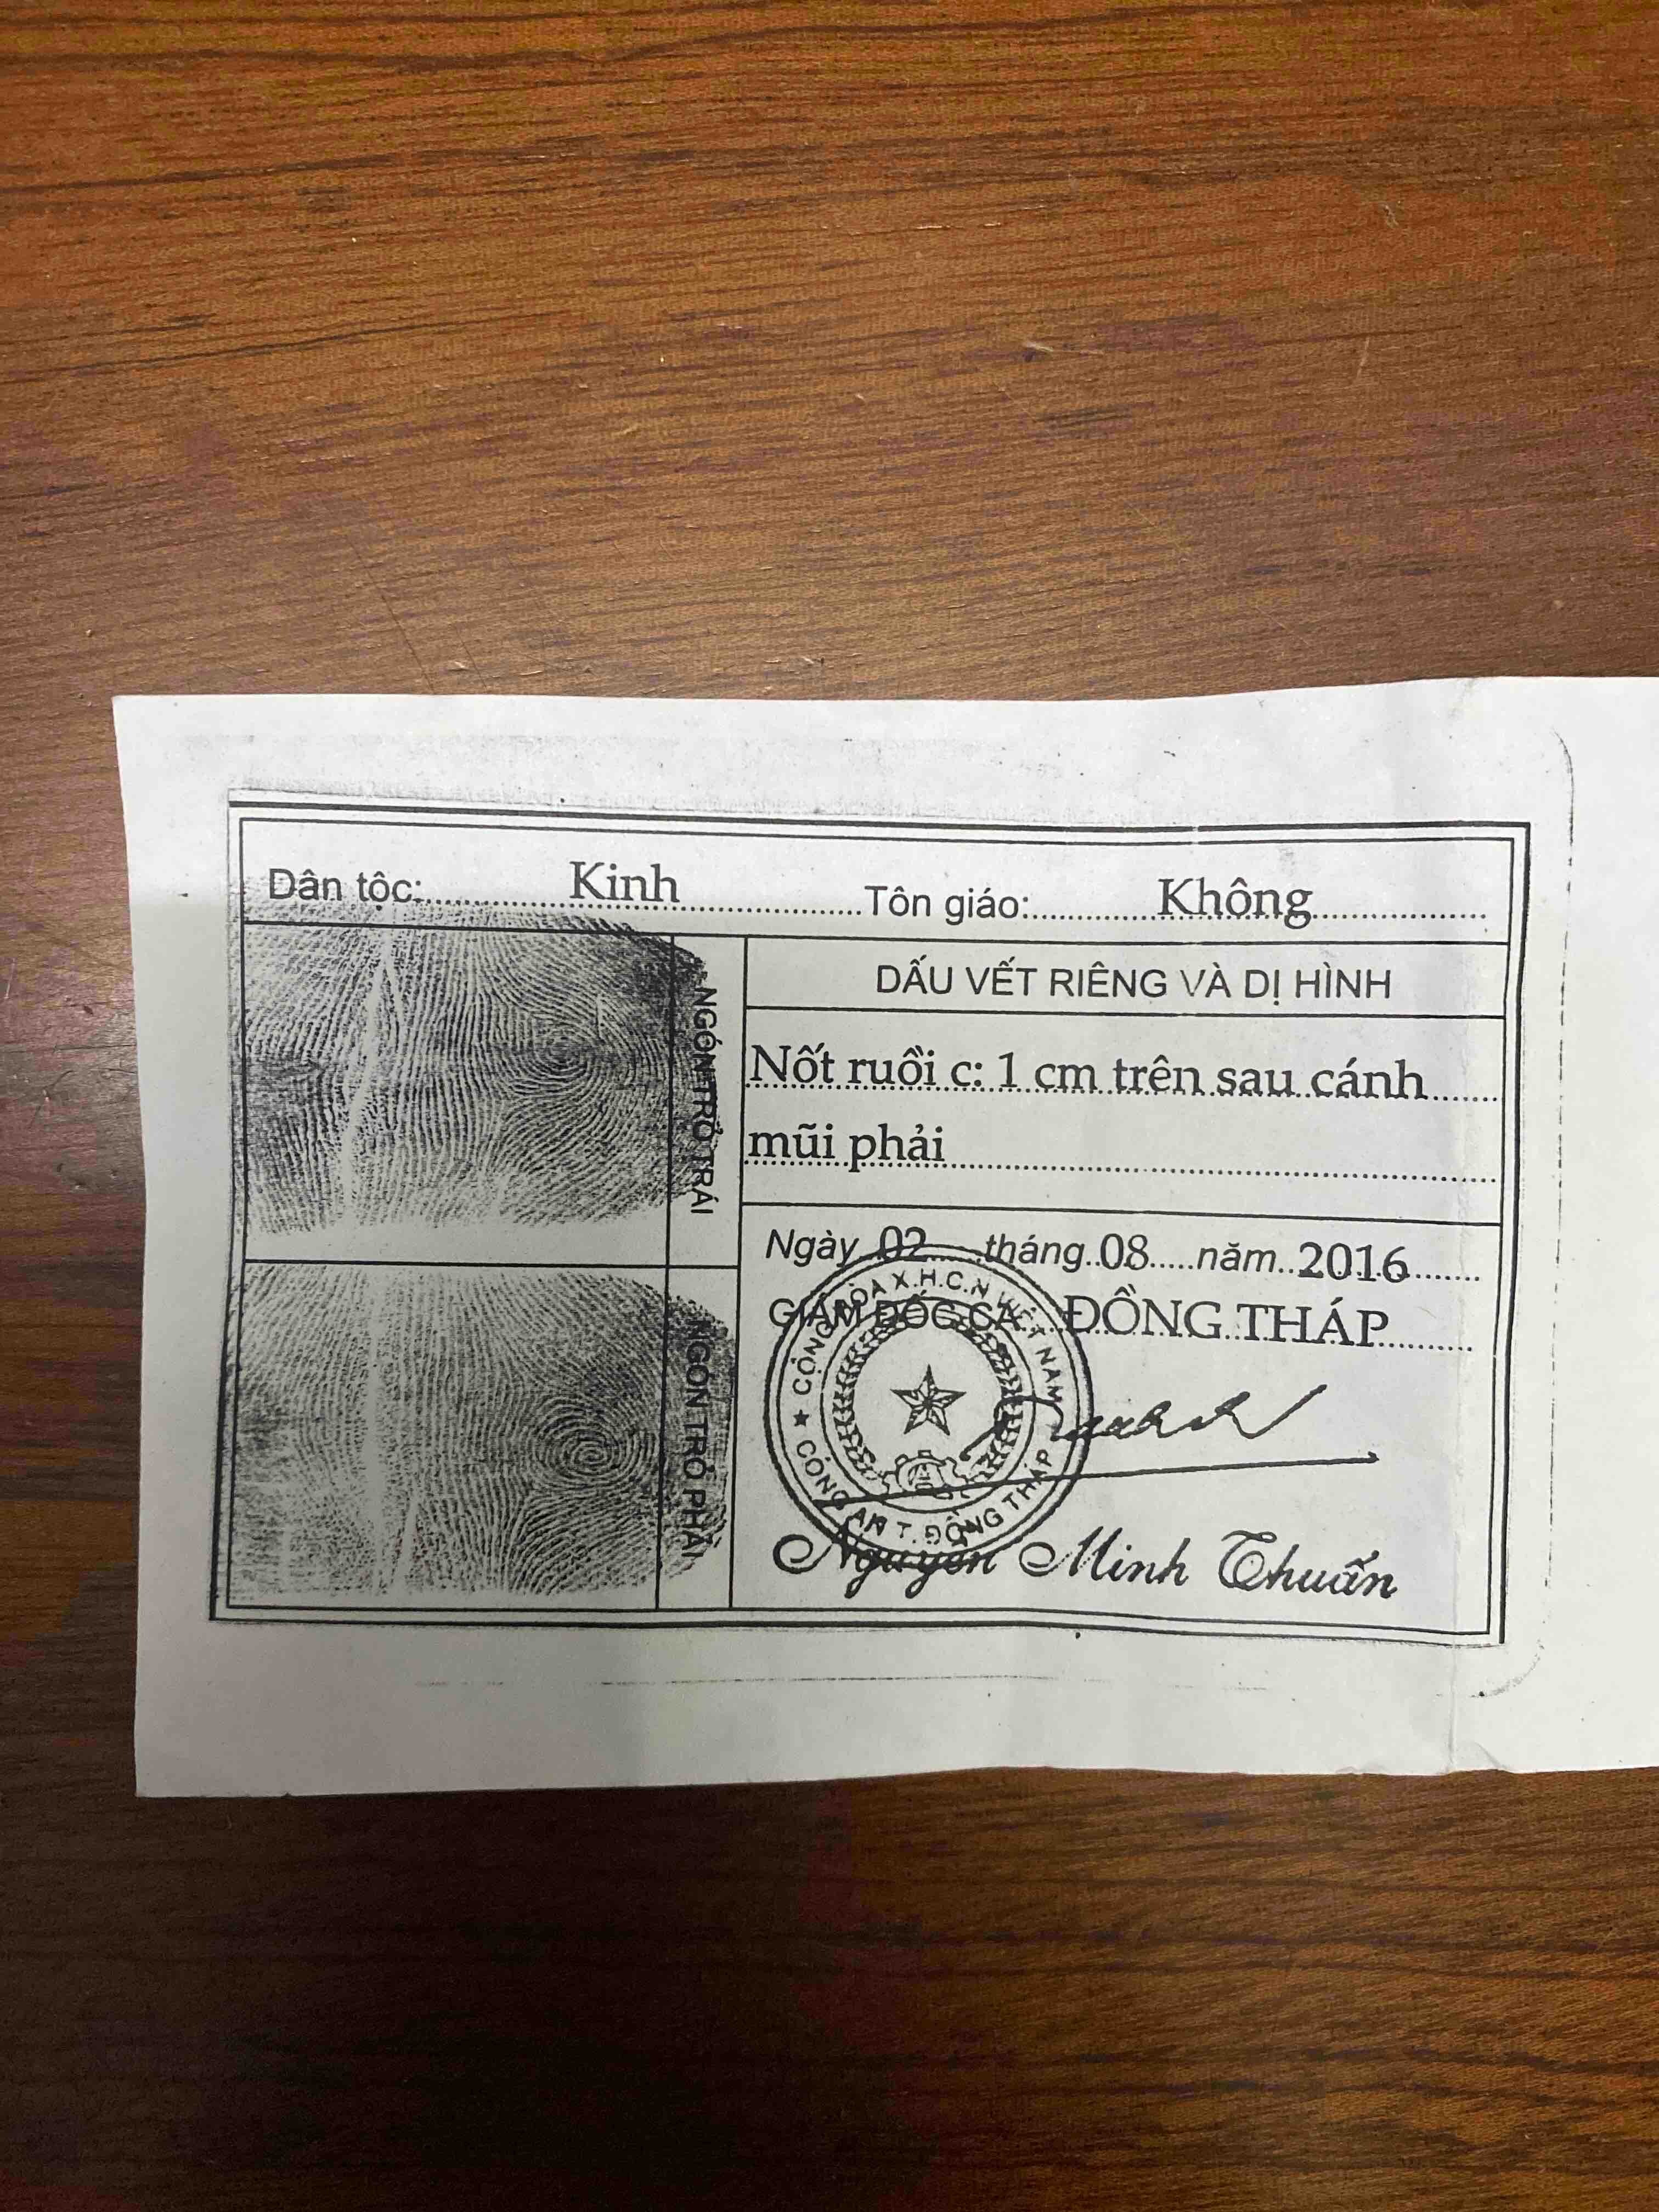 Dân tộc: Kinh Tôn giáo: Không
NGÓN TRỎ TRÁI
DẤU VẾT RIÊNG VÀ DỊ HÌNH
Nốt ruồi c: 1 cm trên sau cánh
mũi phải
NGÓN TRỎ PHẢI
Ngày 02 tháng 08 năm 2016
GIÁM ĐỐC CA ĐỒNG THÁP
CỘNG HÒA X.H.C.N VIỆT NAM
★ CÔNG AN T. ĐỒNG THÁP
Nguyễn Minh Thuấn